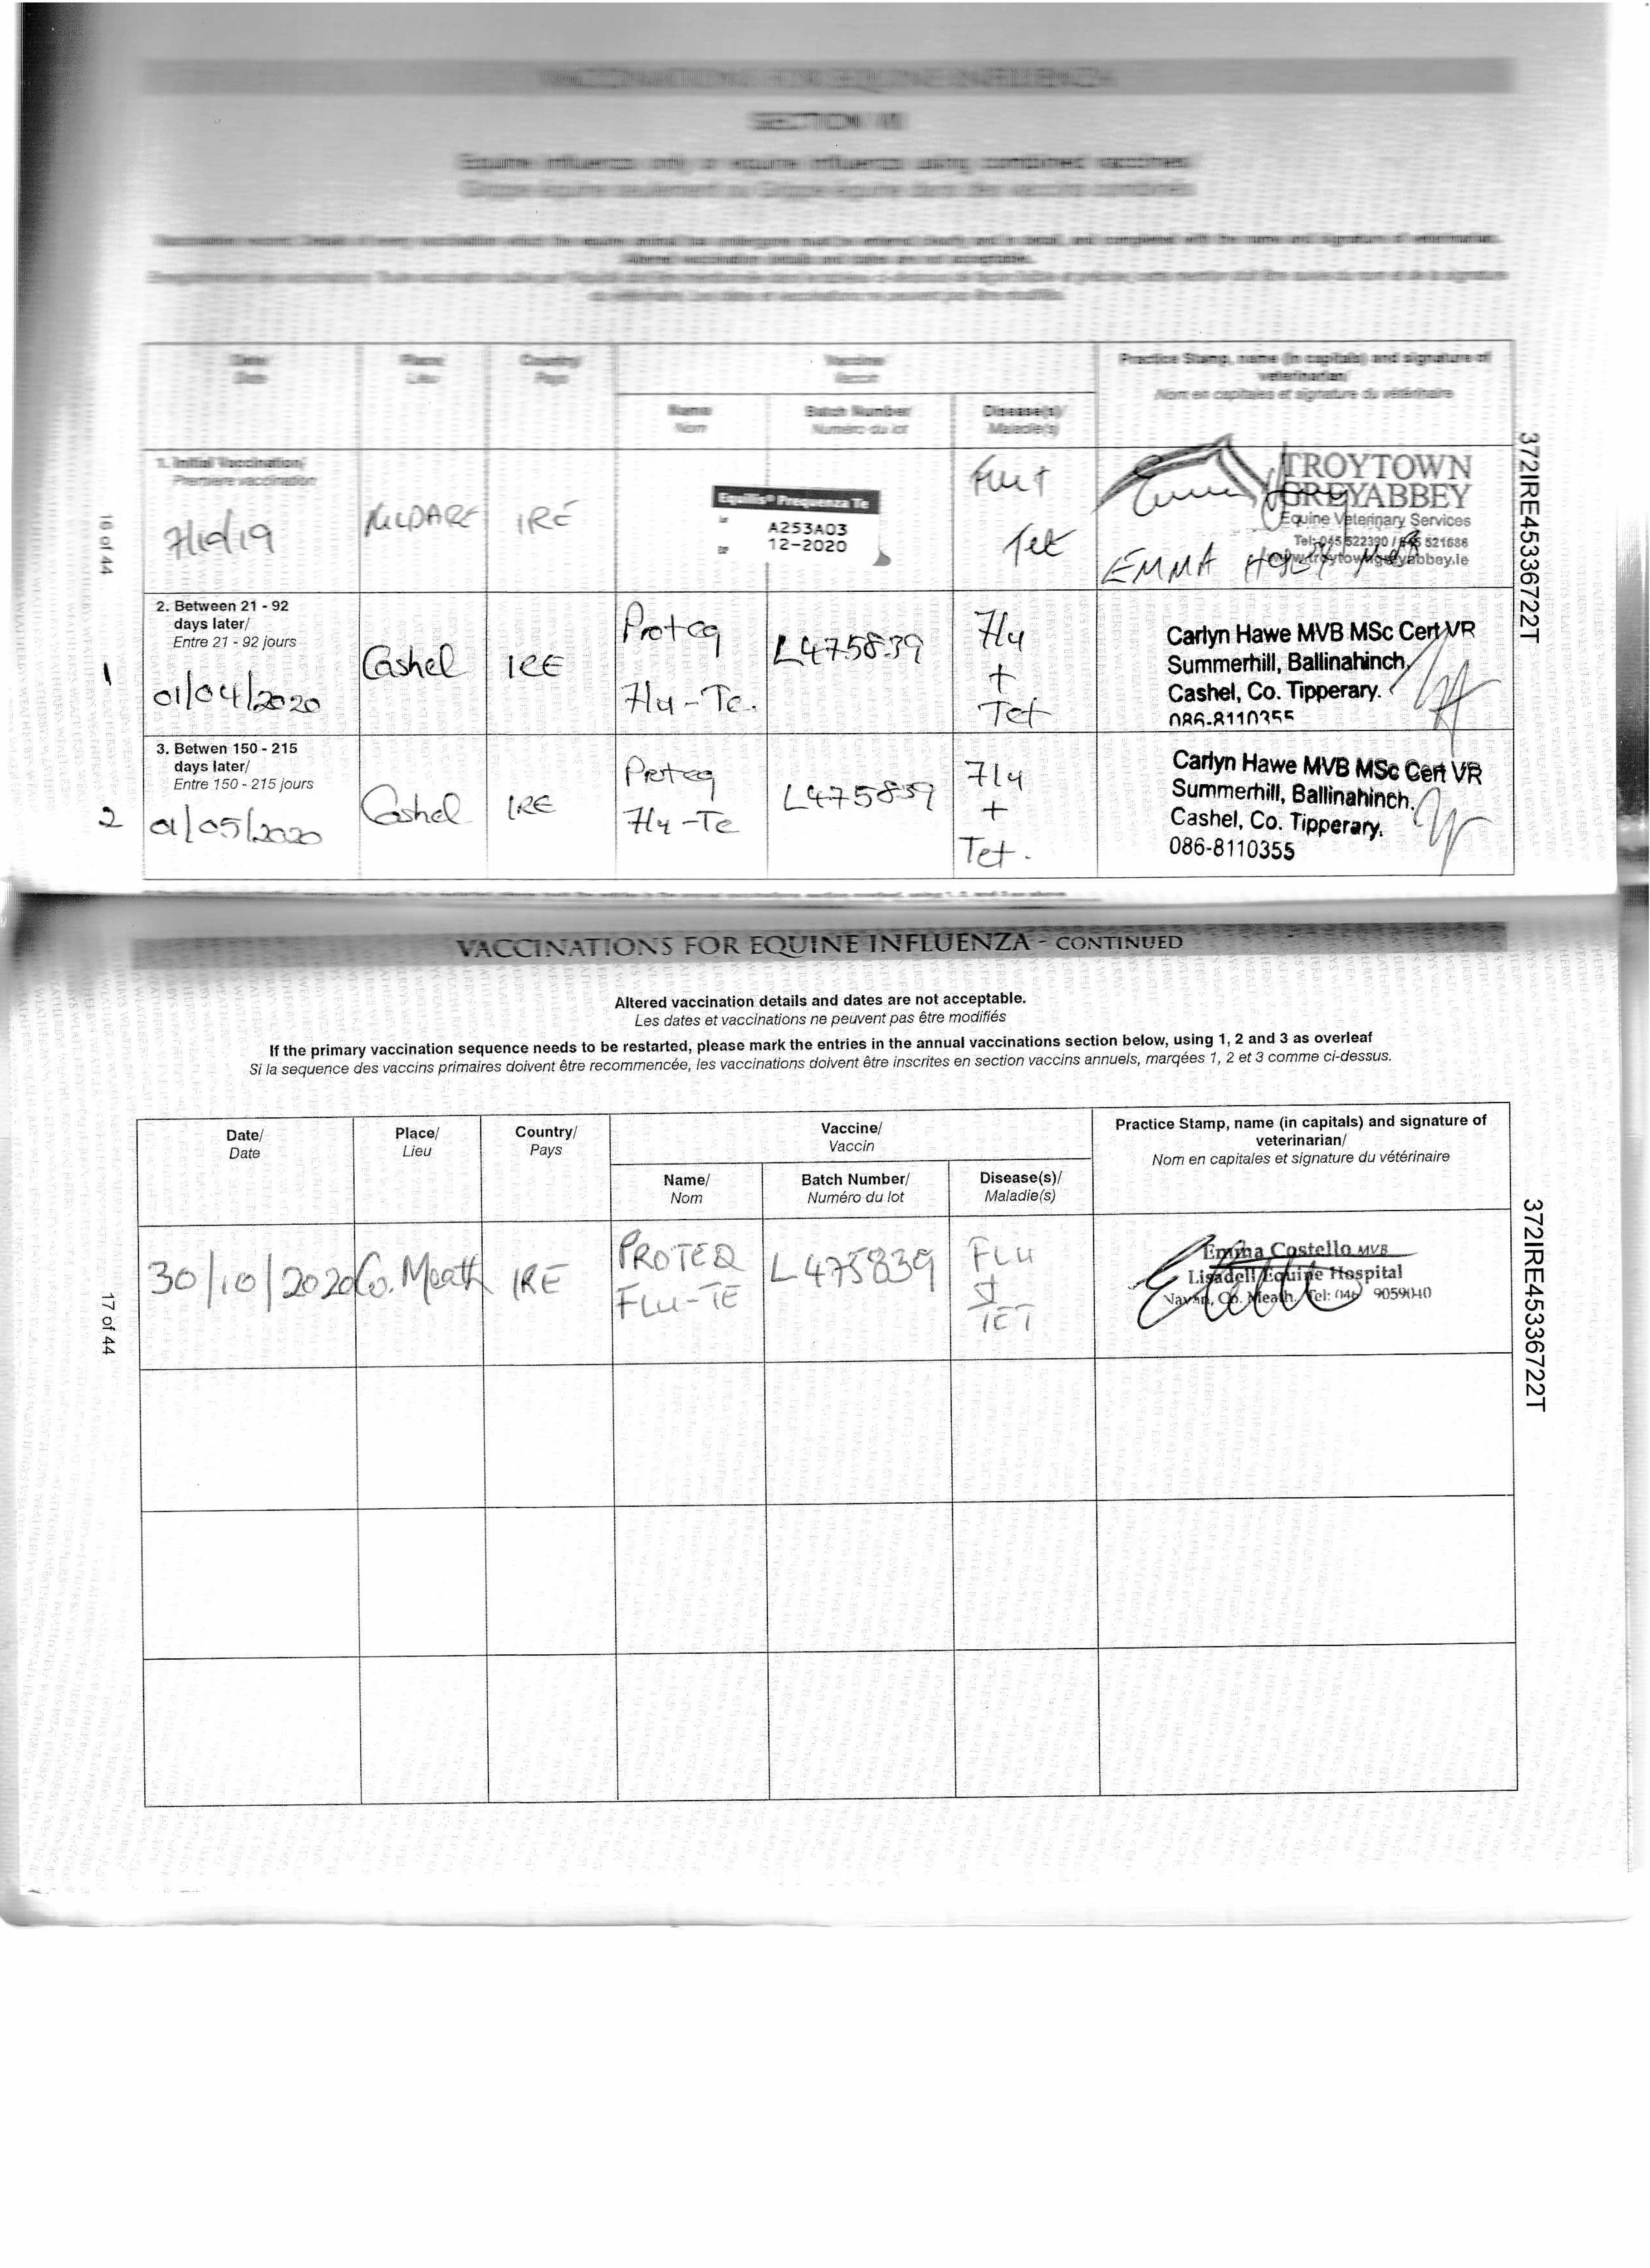 VACCINATIONS FOR EQUINE INFLUENZA
SECTION
Equine influenza only or equine influenza using combined vaccines/
Grippe équine seulement ou Grippe équine dans des vaccins combinés
Altered vaccination details and dates are not acceptable.
Date/
Date
Place/
Lieu
Country/
Pays
Vaccine/
Vaccin
Practice Stamp, name (in capitals) and signature of
veterinarian/
Nom en capitales et signature du vétérinaire
Name/
Nom
Batch Number/
Numéro du lot
Disease(s)/
Maladie(s)
1. Initial Vaccination/
Premiere vaccination
7/10/19
KILDARE
IRE
Equilis® Prequenza Te
A253A03
12-2020
Flu +
Tet
TROYTOWN
GREYABBEY
Equine Veterinary Services
Tel: 045 522390 / 045 521686
www.troytowngreyabbey.ie
EMMA
2. Between 21 - 92
days later/
Entre 21 - 92 jours
1
01/04/2020
Cashel
IRE
Proteq
Flu-Te.
L475839
Flu
+
Tet
Carlyn Hawe MVB MSc Cert VR
Summerhill, Ballinahinch,
Cashel, Co. Tipperary.
086-8110355
3. Betwen 150 - 215
days later/
Entre 150 - 215 jours
2
01/05/2020
Cashel
IRE
Proteq
Flu-Te
L475839
Flu
+
Tet.
Carlyn Hawe MVB MSc Cert VR
Summerhill, Ballinahinch,
Cashel, Co. Tipperary.
086-8110355
16 of 44
372IRE45336722T
VACCINATIONS FOR EQUINE INFLUENZA - CONTINUED
Altered vaccination details and dates are not acceptable.
Les dates et vaccinations ne peuvent pas être modifiés
If the primary vaccination sequence needs to be restarted, please mark the entries in the annual vaccinations section below, using 1, 2 and 3 as overleaf
Si la sequence des vaccins primaires doivent être recommencée, les vaccinations doivent être inscrites en section vaccins annuels, marqées 1, 2 et 3 comme ci-dessus.
Date/
Date
Place/
Lieu
Country/
Pays
Vaccine/
Vaccin
Practice Stamp, name (in capitals) and signature of
veterinarian/
Nom en capitales et signature du vétérinaire
Name/
Nom
Batch Number/
Numéro du lot
Disease(s)/
Maladie(s)
30/10/2020
Co. Meath
IRE
PROTEQ
FLU-TE
L475839
FLU
+
TET
Emma Costello MVB
Lisadell Equine Hospital
Navan, Co. Meath. Tel: 046 9059040
17 of 44
372IRE45336722T